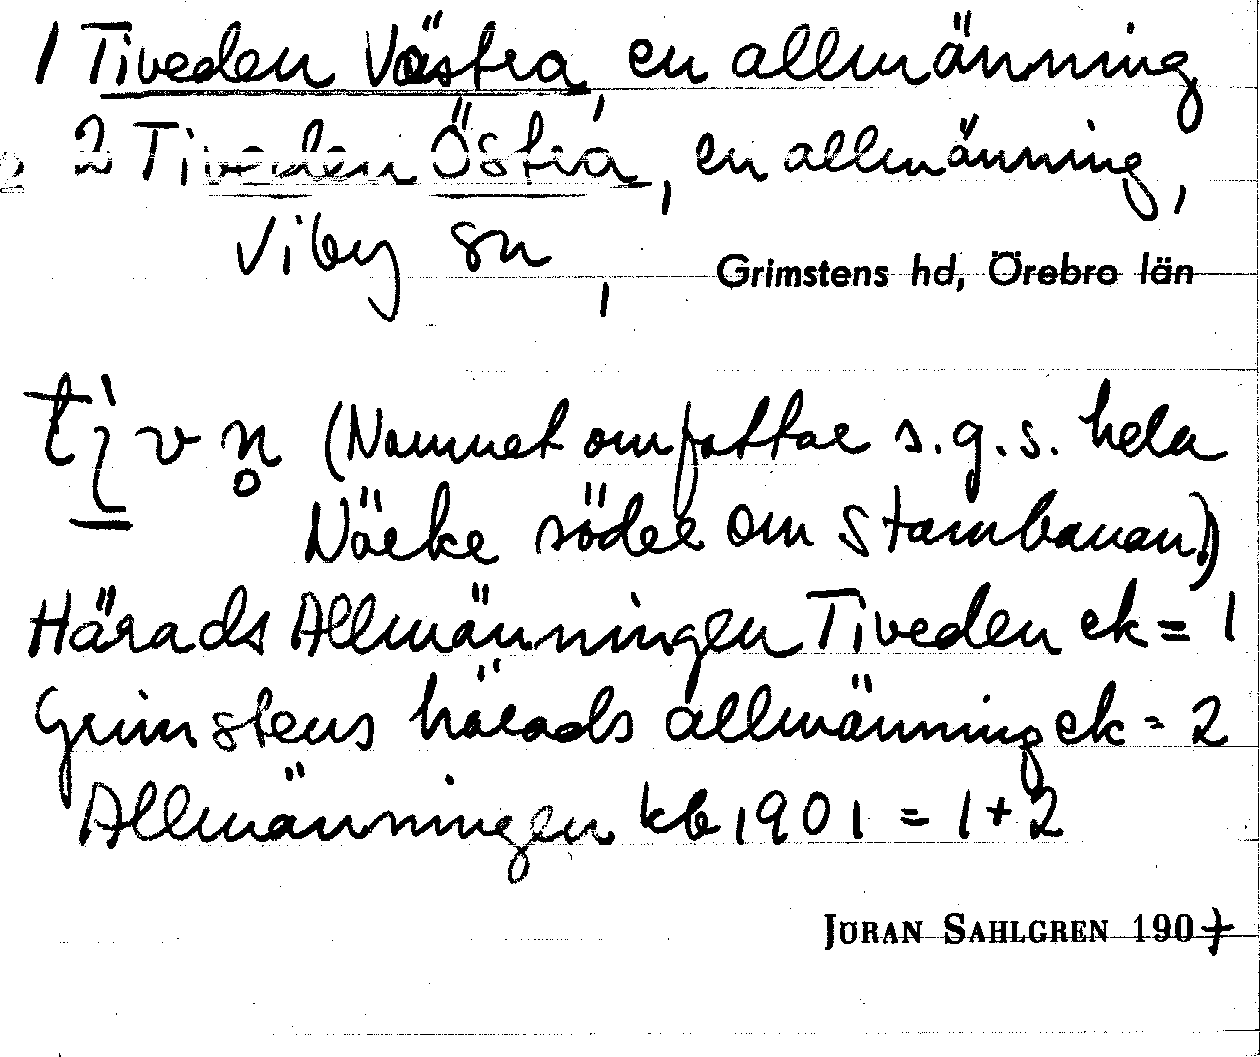 1 Tiveden Västra, en allmänning
2 Tiveden Östra, en allmänning,
Viby sn, Grimstens hd, Örebro län
ti̱vn̥ (Namnet omfattar s.g.s. hela
Närke söder om Stambanan.)
Härads Allmänningen Tiveden ek = 1
Grimstens härads allmänning ek = 2
Allmänningen kb 1901 = 1 + 2
JÖRAN SAHLGREN 1907